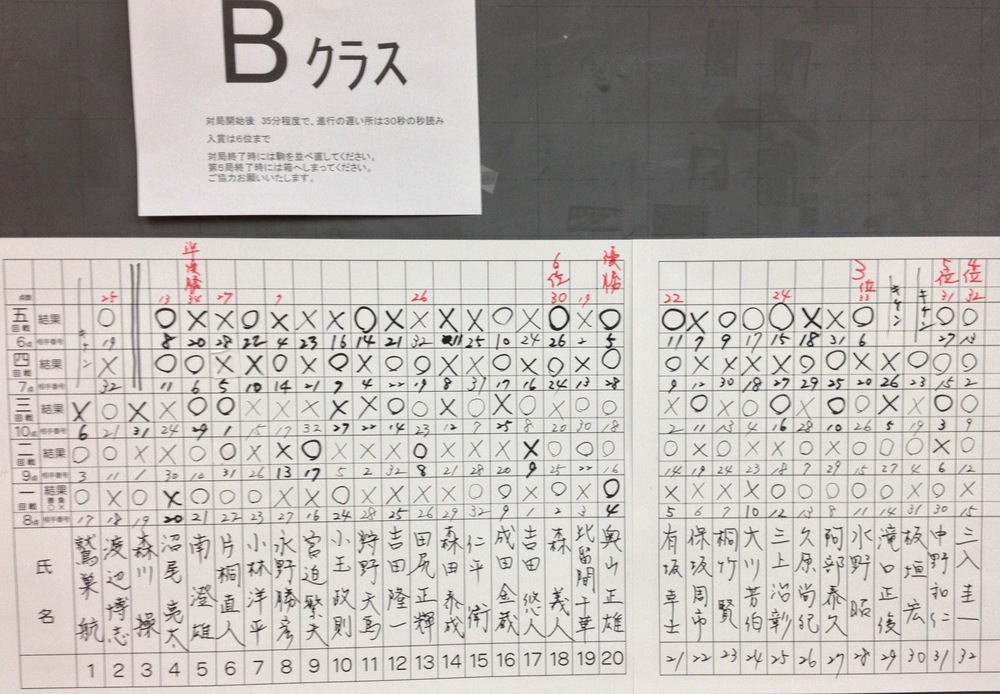 Bクラス
対局開始後 35分程度で、進行の遅い所は30秒の秒読み
入賞は6位まで
対局終了時には駒を並べ直してください。
第5局終了時には箱へしまってください。
ご協力お願いいたします。
準優勝 6位 優勝 3位 5位 4位
点数 25 13 34 27 7 26 30 19 22 24 33 31 32
五回戦 結果 ○ ○ × × ○ × × × ○ × × × × ○ × ○ × ○ ○ × ○ ○ ○ × × ○ ○ ○
6点 相手番号 19 8 20 28 22 4 23 16 14 21 32 11 25 10 24 26 2 5 11 7 9 17 15 18 31 6 27 13
四回戦 結果
7点 相手番号 32 11 6 5 10 14 21 9 4 22 19 8 31 17 16 24 13 28 9 12 30 18 27 29 25 20 26 23 15 2
三回戦 結果
10点 相手番号 6 21 31 24 29 1 15 17 32 27 22 14 23 12 7 25 8 20 30 18 2 11 13 4 16 28 10 26 5 19 3 9
二回戦 結果
9点 相手番号 3 11 1 30 10 31 26 13 17 5 2 32 8 21 28 20 9 25 22 16 14 19 24 23 18 7 29 15 27 4 6 12
一回戦 結果 勝○ 負×
8点 相手番号 17 18 19 20 21 22 23 27 16 24 28 25 26 29 32 9 1 2 3 4 5 6 7 10 12 13 8 11 14 31 30 15
氏名 鷲巣航 渡辺博志 森川操 沼尾亮太 南澄雄 片桐直人 小林洋平 永野勝彦 宮迫繁夫 小玉政則 狩野天馬 吉田隆一 田尻正輝 森田泰成 仁平衛 成田金蔵 吉田悠人 森義人 比留間千華 奥山正雄 有坂卓士 保坂周市 桐竹賢 大川芳伯 三上沼彰 久原尚紀 阿部泰久 水野昭 滝口正俊 板垣宏 中野和仁 三入圭一
1 2 3 4 5 6 7 8 9 10 11 12 13 14 15 16 17 18 19 20 21 22 23 24 25 26 27 28 29 30 31 32